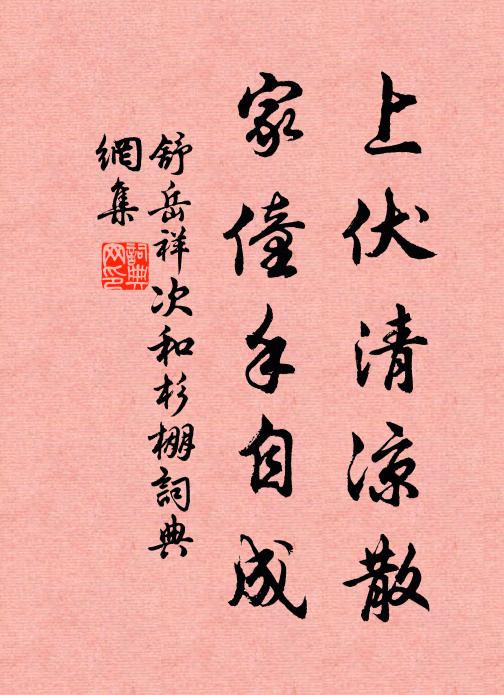 上伏清凉散
家僮手自成
舒岳祥次和杉棚詞典
網集
詞典網印